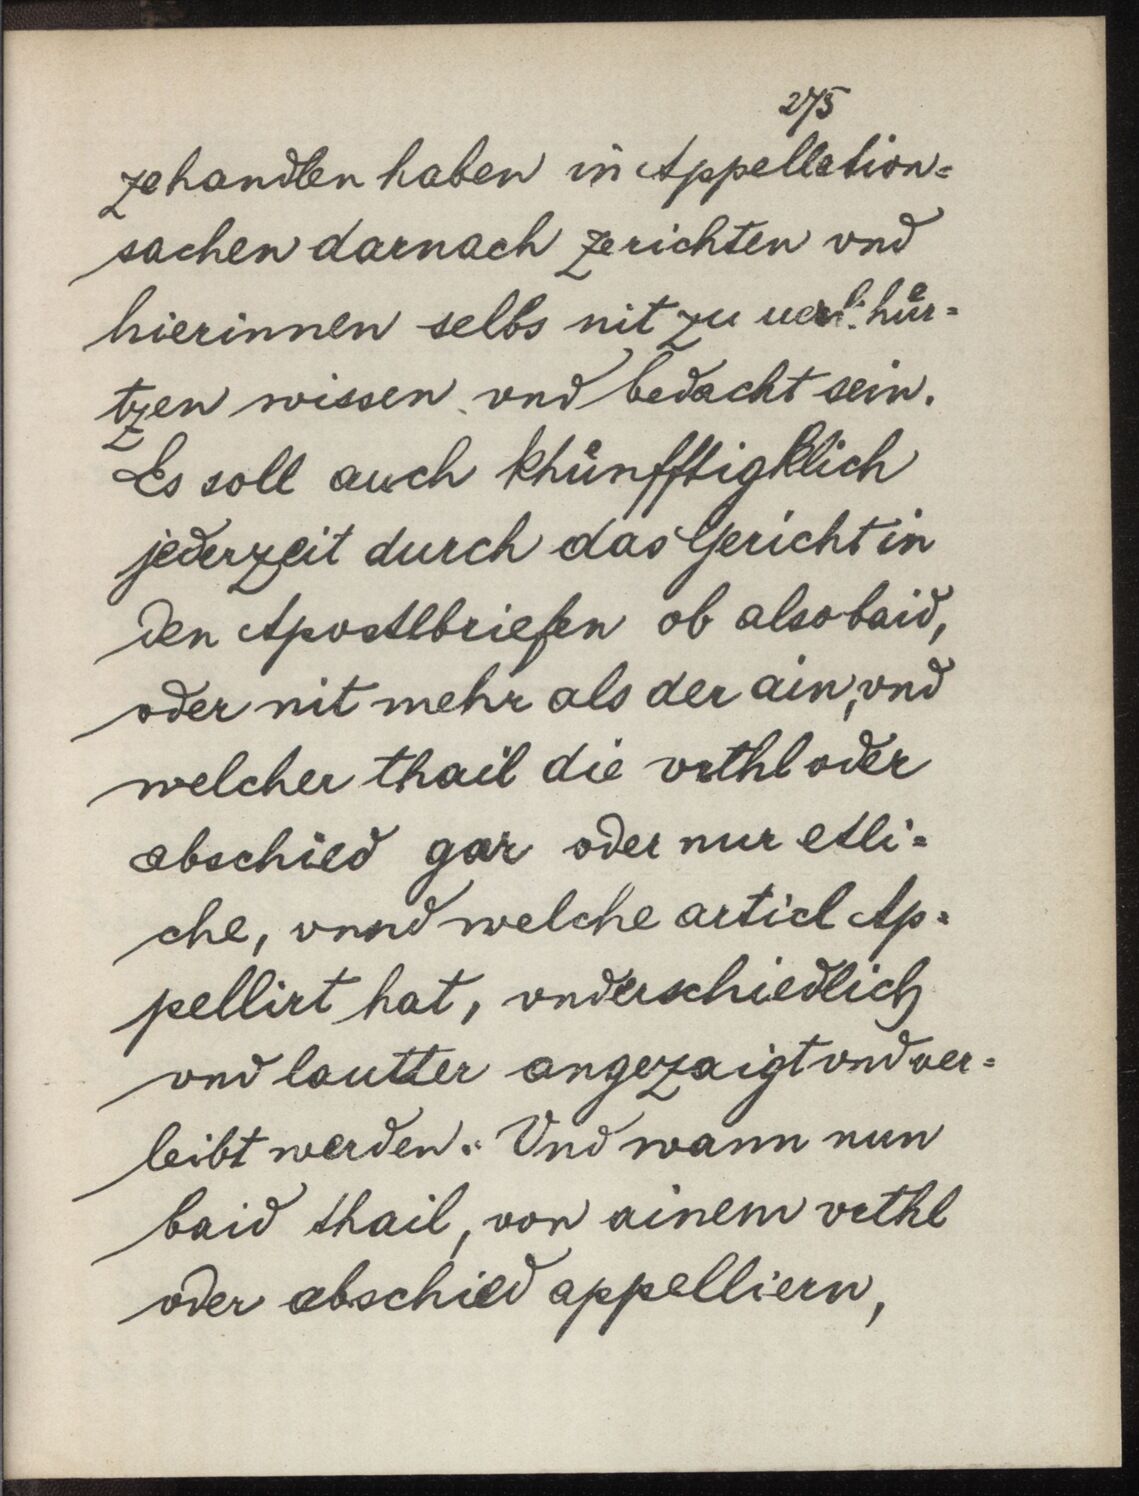 275
zehandlen haben in Appellation=
sachen darnach zerichten vnd
hierinnen selbs nit zu
tzen wissen vnd bedacht sein.
Es soll auch khünfftigklich
jederzeit durch das Gericht in
den Apostlbriefen ob also baid,
oder nit mehr als der ain, vnd
welcher thail die vrthl oder
abschied gar oder nur etli=
che, vnnd welche articl Ap=
pellirt hat, vnderschiedlich
vnd lautter angezaigt vnd ver=
leibt werden. Vnd wann nun
baid thail, von ainem vrthl
oder abschied appelliern,